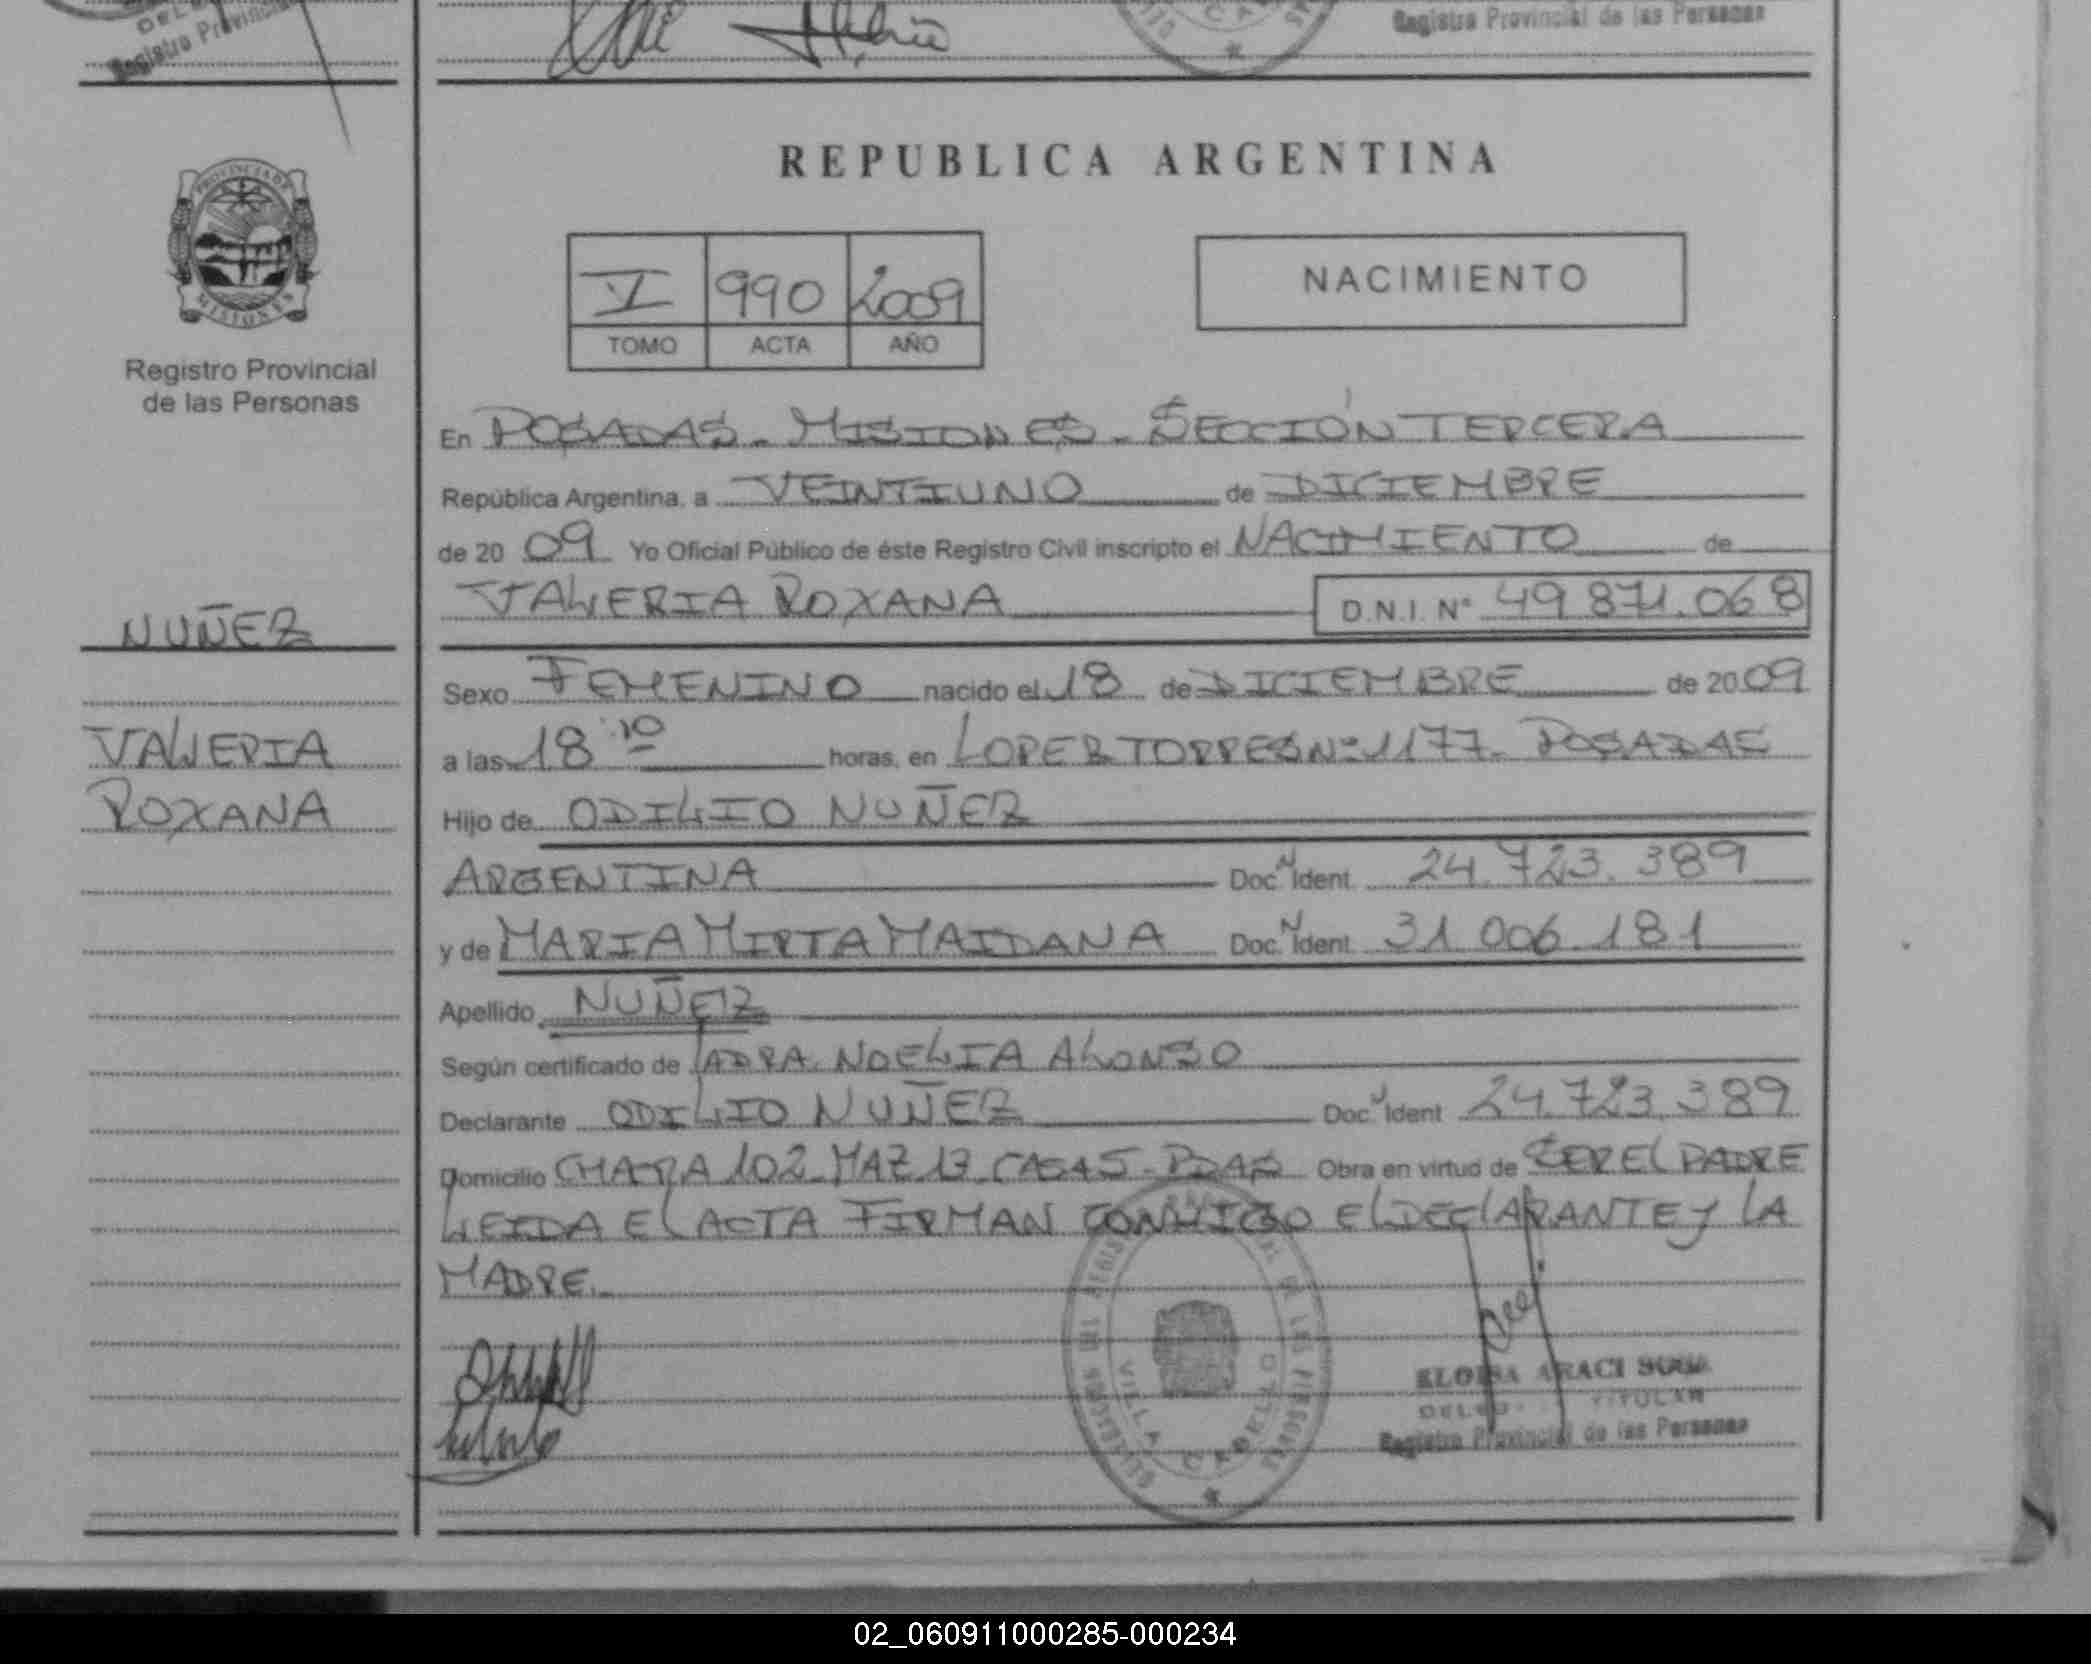 Registro Provincial
Registro Provincial de las Personas
REPUBLICA ARGENTINA
PROVINCIA DE
MISIONES
Registro Provincial
de las Personas
V 990 2009
TOMO ACTA AÑO
NACIMIENTO
En POSADAS - MISIONES - SECCIÓN TERCERA
República Argentina, a VEINTIUNO de DICIEMBRE
de 20 09 Yo Oficial Público de éste Registro Civil inscripto el NACIMIENTO de
VALERIA ROXANA D.N.I. Nº 49.871.068
NUÑEZ
VALERIA
ROXANA
Sexo FEMENINO nacido el 18 de DICIEMBRE de 20 09
a las 18:10 horas, en LOPEZ TORRES Nº 1177 - POSADAS
Hijo de ODILIO NUÑEZ
ARGENTINA Doc. N Ident. 24.723.389
y de MARIA MIRTA MAIDANA Doc. N Ident. 31.006.181
Apellido NUÑEZ
Según certificado de LA DRA. NOELIA ALONSO
Declarante ODILIO NUÑEZ Doc. N Ident 24.723.389
Domicilio CHACRA 102 - MAZ 13 CASA 5 - PDAS Obra en virtud de SER EL PADRE
LEIDA EL ACTA FIRMAN CONMIGO EL DECLARANTE Y LA
MADRE.
VILLA CABELLO
ELOISA ARACI
TITULAR
Registro Provincial de las Personas
02_060911000285-000234